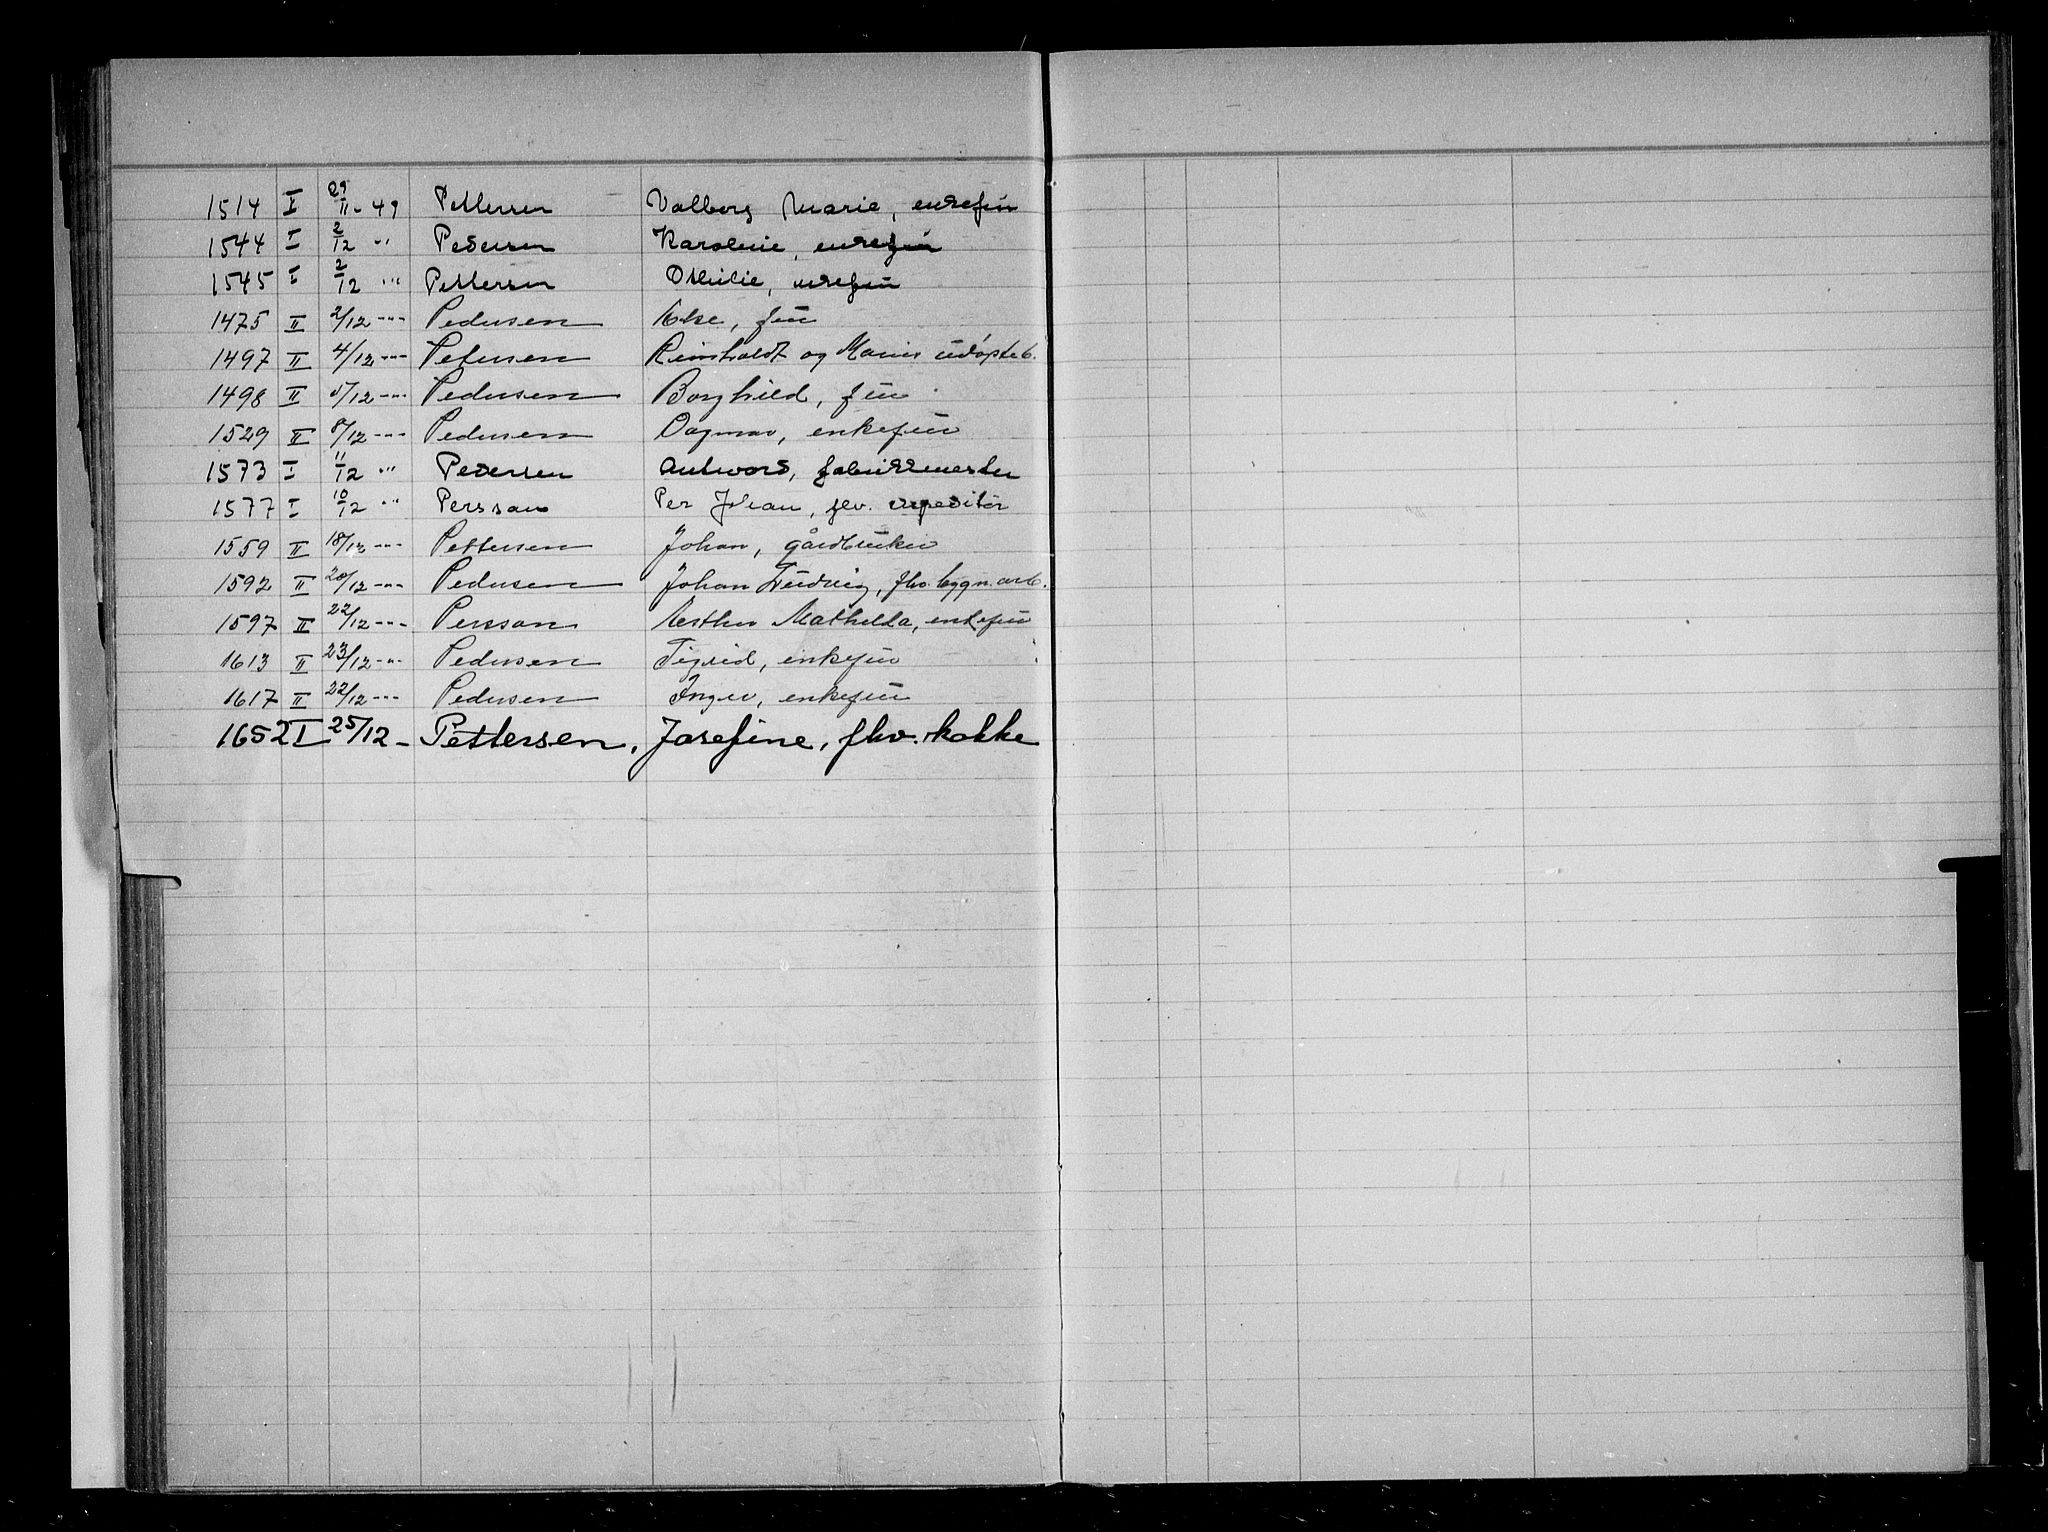 1514 I 29/11-49 Pettersen Valborg Marie, enkefru
1544 I 2/12 -"- Pedersen Karoline, enkefru
1545 I 2/12 -"- Pettersen Othilie, enkefru
1475 II 2/12 -"- Pedersen Else, fru
1497 II 4/12 -"- Petersen Reinholdt og Maries udøpte b.
1498 II 5/12 -"- Pedersen Borghild, fru
1529 II 8/12 -"- Pedersen Dagmar, enkefru
1573 I 11/12 -"- Pedersen Antword, fabrikkmester
1577 I 10/12 -"- Persson Per Johan, fhv. expeditør
1559 II 18/12 -"- Pettersen Johan, gårdbruker
1592 II 20/12 -"- Pedersen Johan Ludvig, fhv. bygn.arb.
1597 II 22/12 -"- Persson Esther Mathilda, enkefru
1613 II 23/12 -"- Pedersen Sigrid, enkefru
1617 II 22/12 -"- Pedersen Inger, enkefru
1652 I 25/12 - Pettersen, Josefine, fhv. kokke